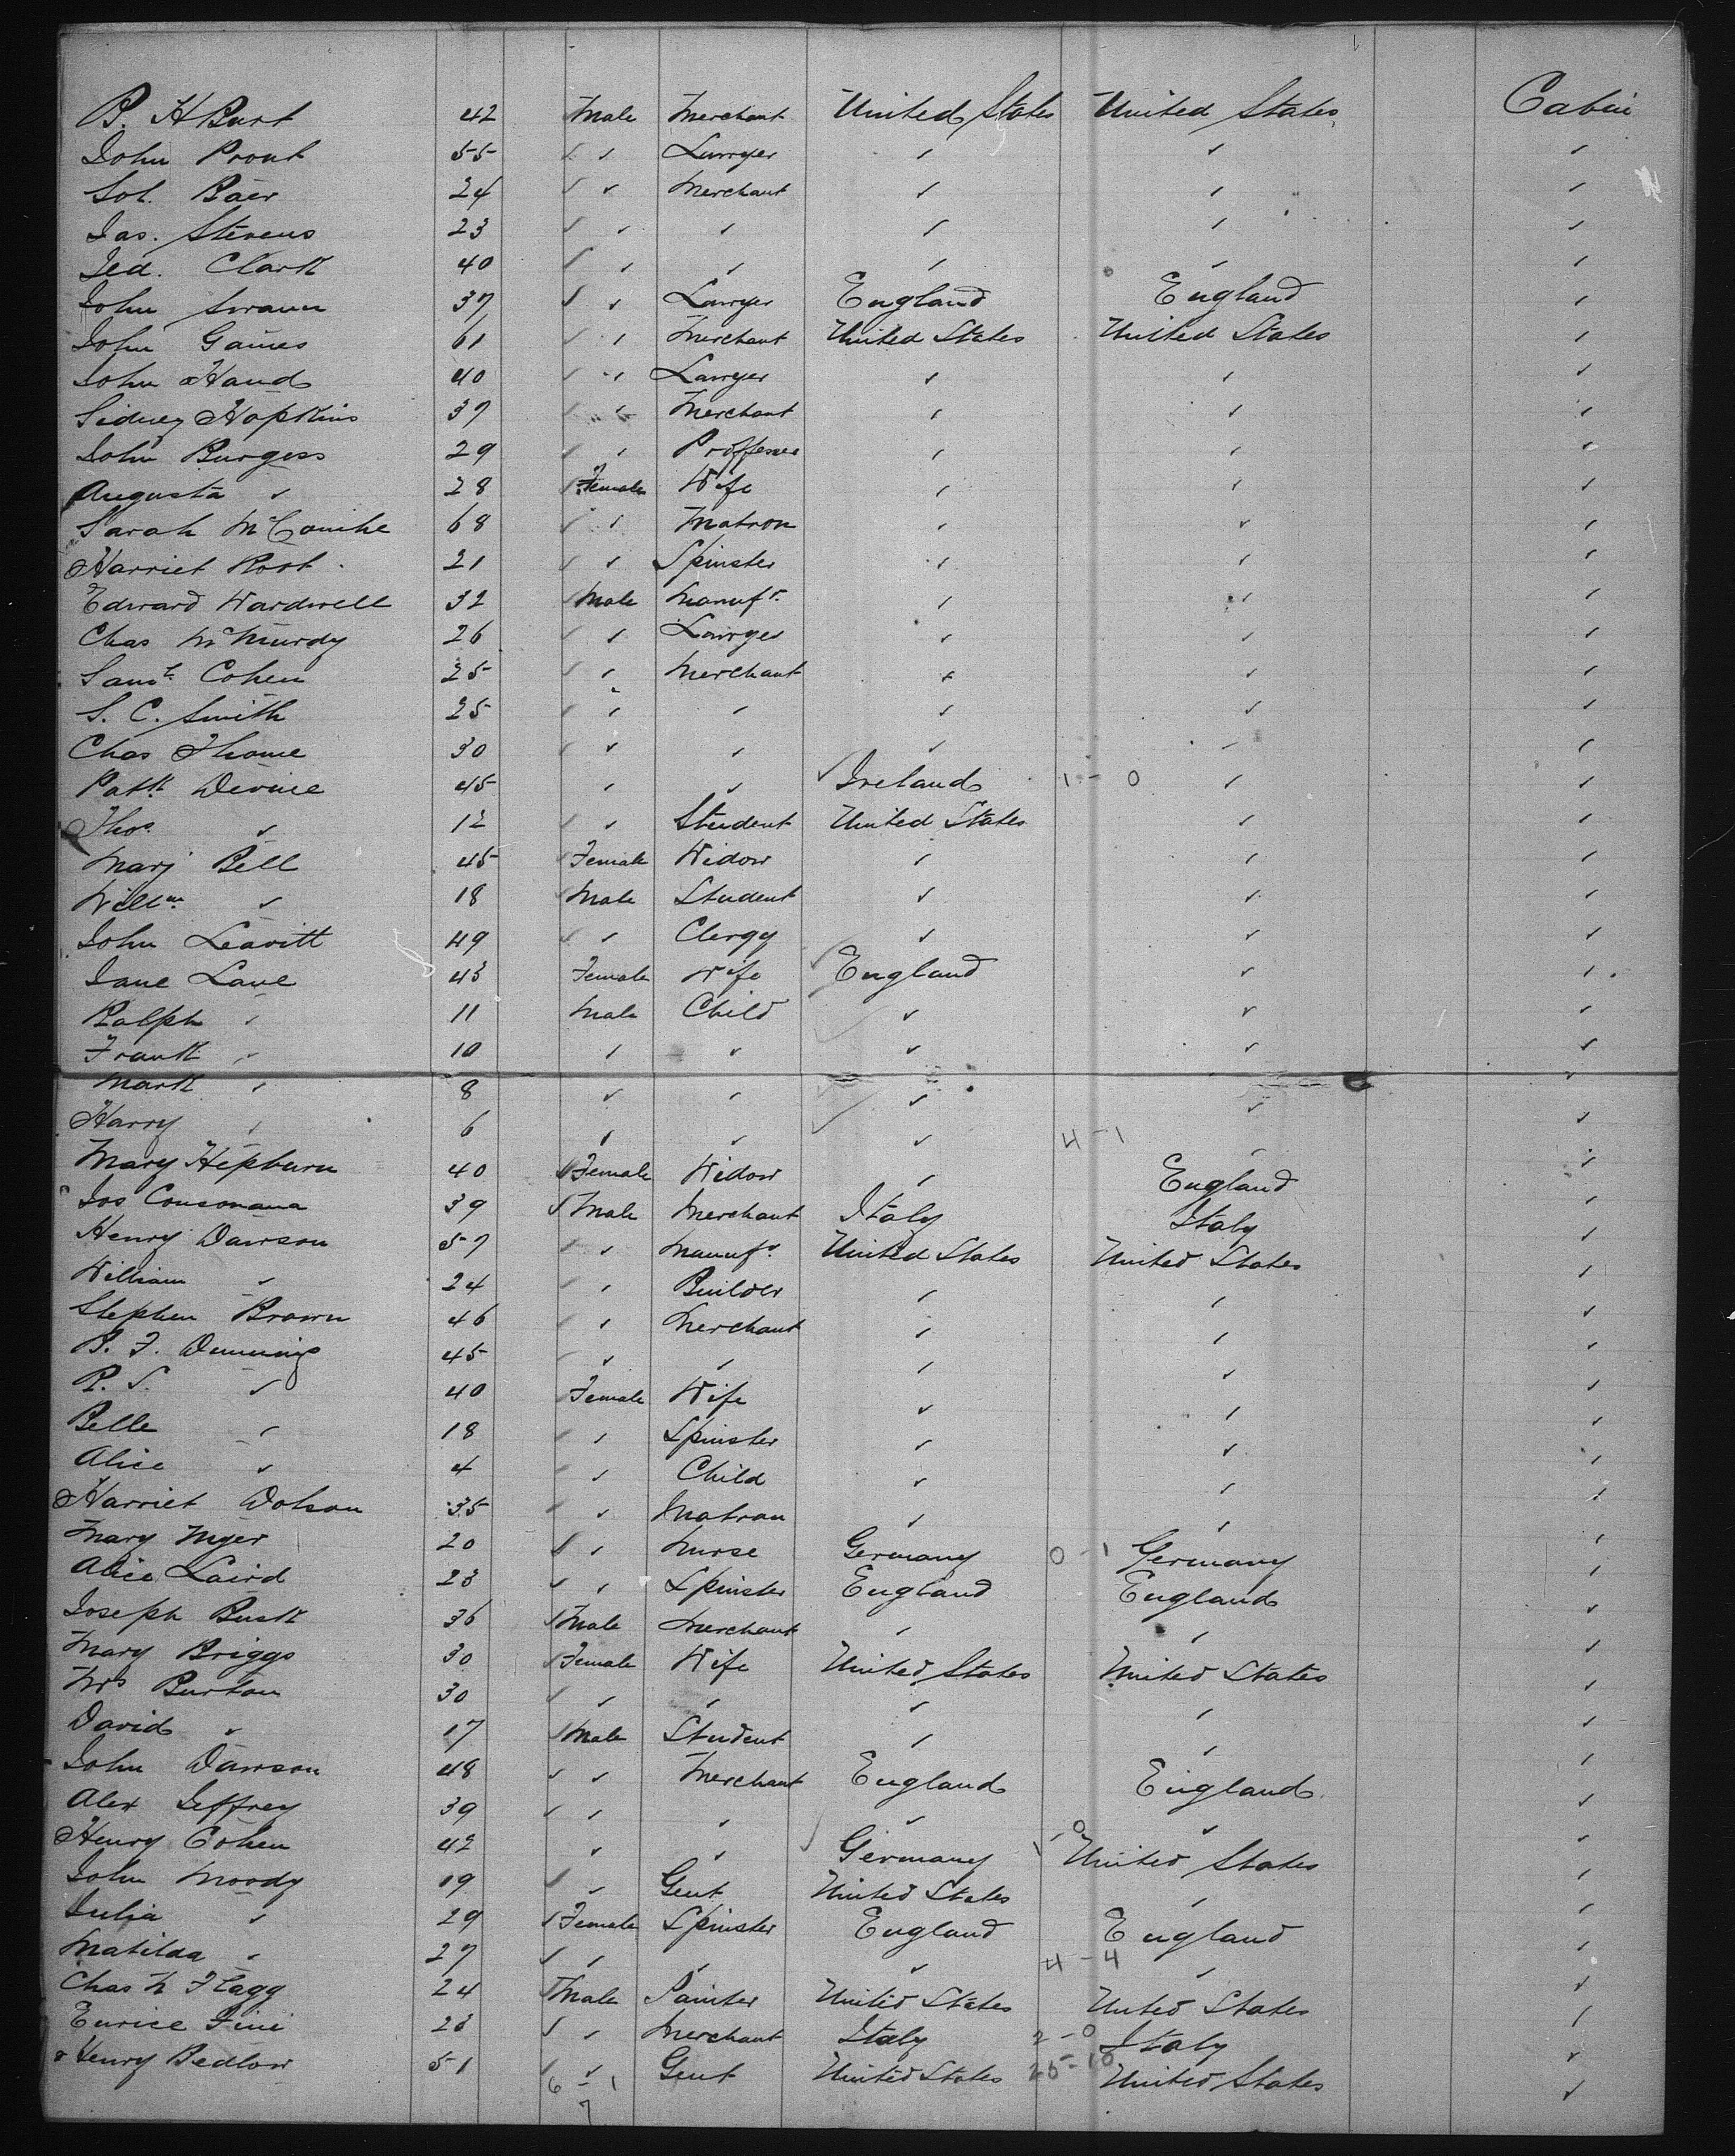 B. H Burt 42 Male Merchant United States United States Cabin
John Prout 55 " " Lawyer " " "
Sol. Baer 24 " " Merchant " " "
Jas. Stevens 23 " " " " " "
Jed. Clark 40 " " " " " "
John Swann 37 " " Lawyer England England "
John Gaines 61 " " Merchant United States United States "
John Hand 40 " " Lawyer " " "
Sidney Hopkins 37 " " Merchant " " "
John Burgess 29 " " Proffesser " " "
Augusta " 28 Female Wife " " "
Sarah McComihe 68 " " Matron " " "
Harriet Root 21 " " Spinster " " "
Edward Wardwell 32 Male Manufr. " " "
Chas McMurdy 26 " " Lawyer " " "
Saml. Cohen 25 " " Merchant " " "
S. C. Smith 25 " " " " " "
Chas Thome 30 " " " " " "
Patk Devine 45 " " Ireland 1 - 0 " "
Thos. " 12 " " Student United States " "
Mary Bell 45 Female Widow " " "
Willm. " 18 Male Student " " "
John Leavitt 49 " " Clergy " " "
Jane Lane 43 Female Wife England " "
Ralph " 11 Male Child " " "
Frank " 10 " " " " "
Mark " 8 " " " " "
Harry " 6 " " " 4 - 1 " "
Mary Hepburn 40 Female Widow " England "
Jos Consonana 39 Male Merchant Italy Italy "
Henry Dawson 57 " " Manufr. United States United States "
William " 24 " " Builder " " "
Stephen Brown 46 " " Merchant " " "
B. F. Demming 45 " " " " " "
R. S. " 40 Female Wife " " "
Belle " 18 " " Spinster " " "
Alice " 4 " " Child " " "
Harriet Dotson 35 " " Matron " " "
Mary Myer 20 " " Nurse Germany 0 - 1 Germany "
Alice Laird 23 " " Spinster England England "
Joseph Busk 36 Male Merchant " " "
Mary Briggs 30 Female Wife United States United States "
Mrs Burton 30 " " " " " "
David " 17 Male Student " " "
John Dawson 48 " " Merchant England England "
Alex Jeffrey 39 " " " " " "
Henry Cohen 42 " " Germany 1 - 0 United States "
John Moody 19 " " Gent United States " "
Julia " 29 Female Spinster England England "
Matilda " 27 " " " " 4 - 4 " "
Chas N Flagg 24 Male Painter United States United States "
Enrice Fini 23 " " Merchant Italy 2 - 0 Italy "
Henry Bedlow 51 " " Gent United States 25 - 10 United States "
6 - 1
7